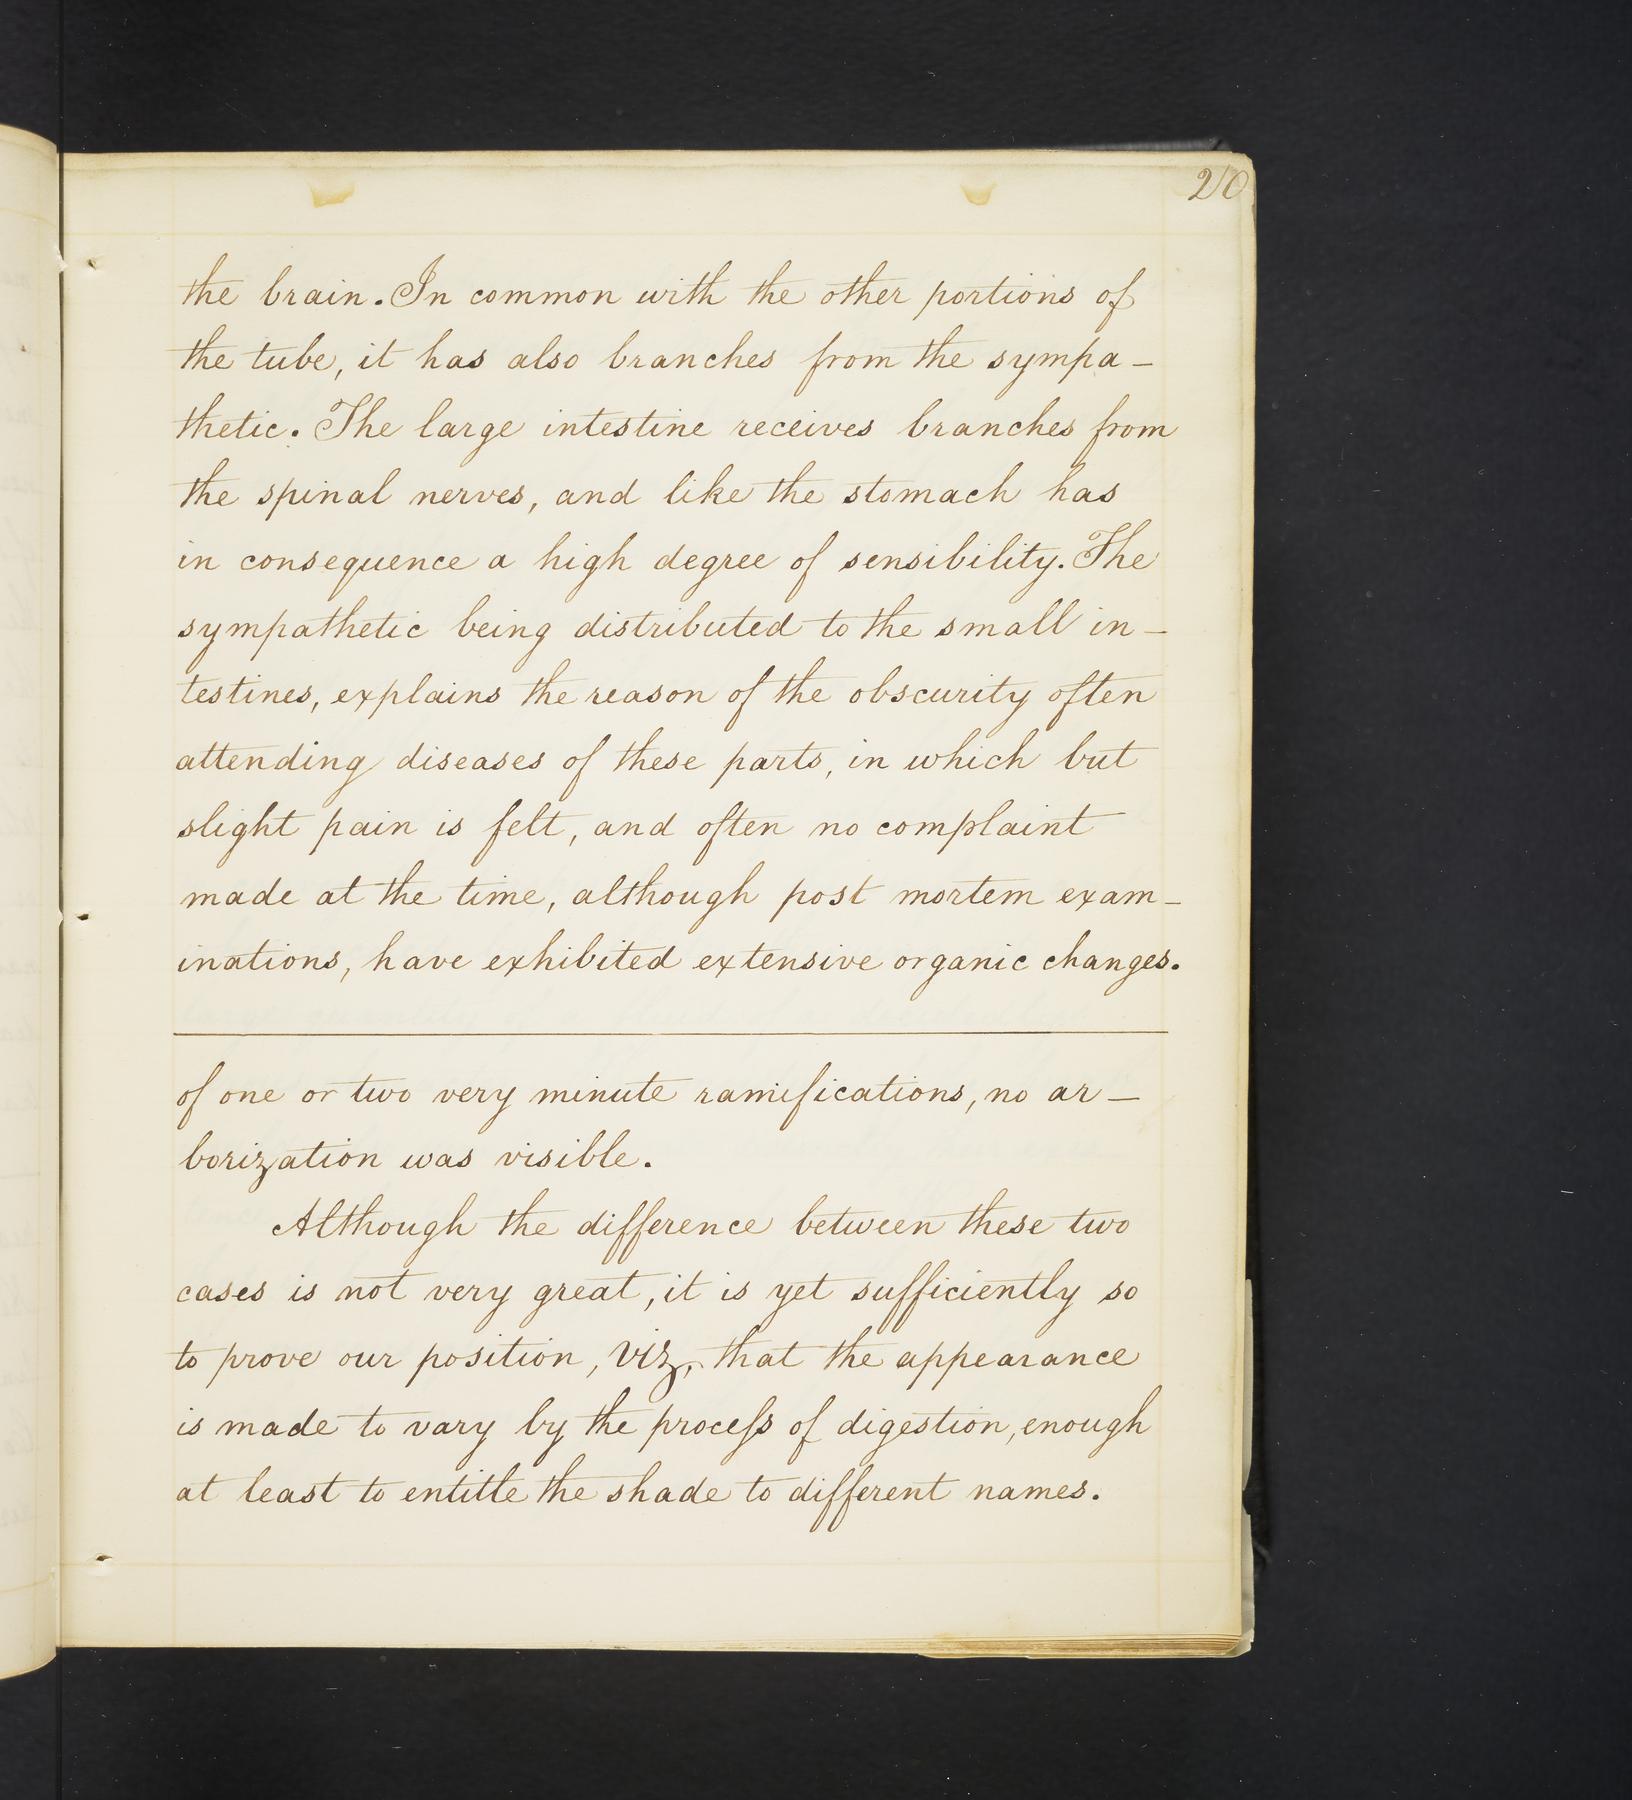 20
the brain. In common with the other portions of
the tube, it has also branches from the sympa-
thetic. The large intestine receives branches from
the spinal nerves, and like the stomach has
in consequence a high degree of sensibility. The
sympathetic being distributed to the small in-
testines, explains the reason of the obscurity often
attending diseases of these parts, in which but
slight pain is felt, and often no complaint
made at the time, although post mortem exam-
inations, have exhibited extensive organic changes.
of one or two very minute ramifications, no ar-
borization was visible.
Although the difference between these two
cases is not very great, it is yet sufficiently so
to prove our position, viz, that the appearance
is made to vary by the proceſs of digestion, enough
at least to entitle the shade to different names.